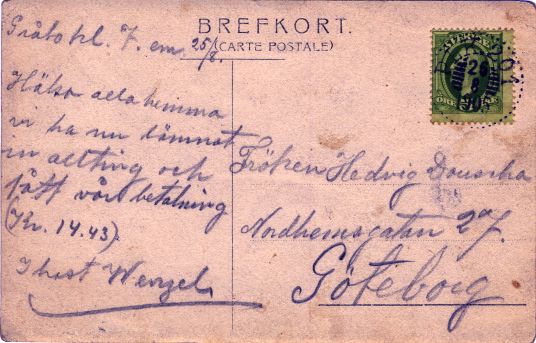 BREFKORT.
(CARTE POSTALE)
Gråbo kl. 7. em 25/8.
Hälsa alla hemma
vi ha nu lämnat
in allting och
fått vår betalning
(Kr. 14.43).
I hast Wenzel
Fröken Hedvig
Nordhemsgatan 27.
Göteborg